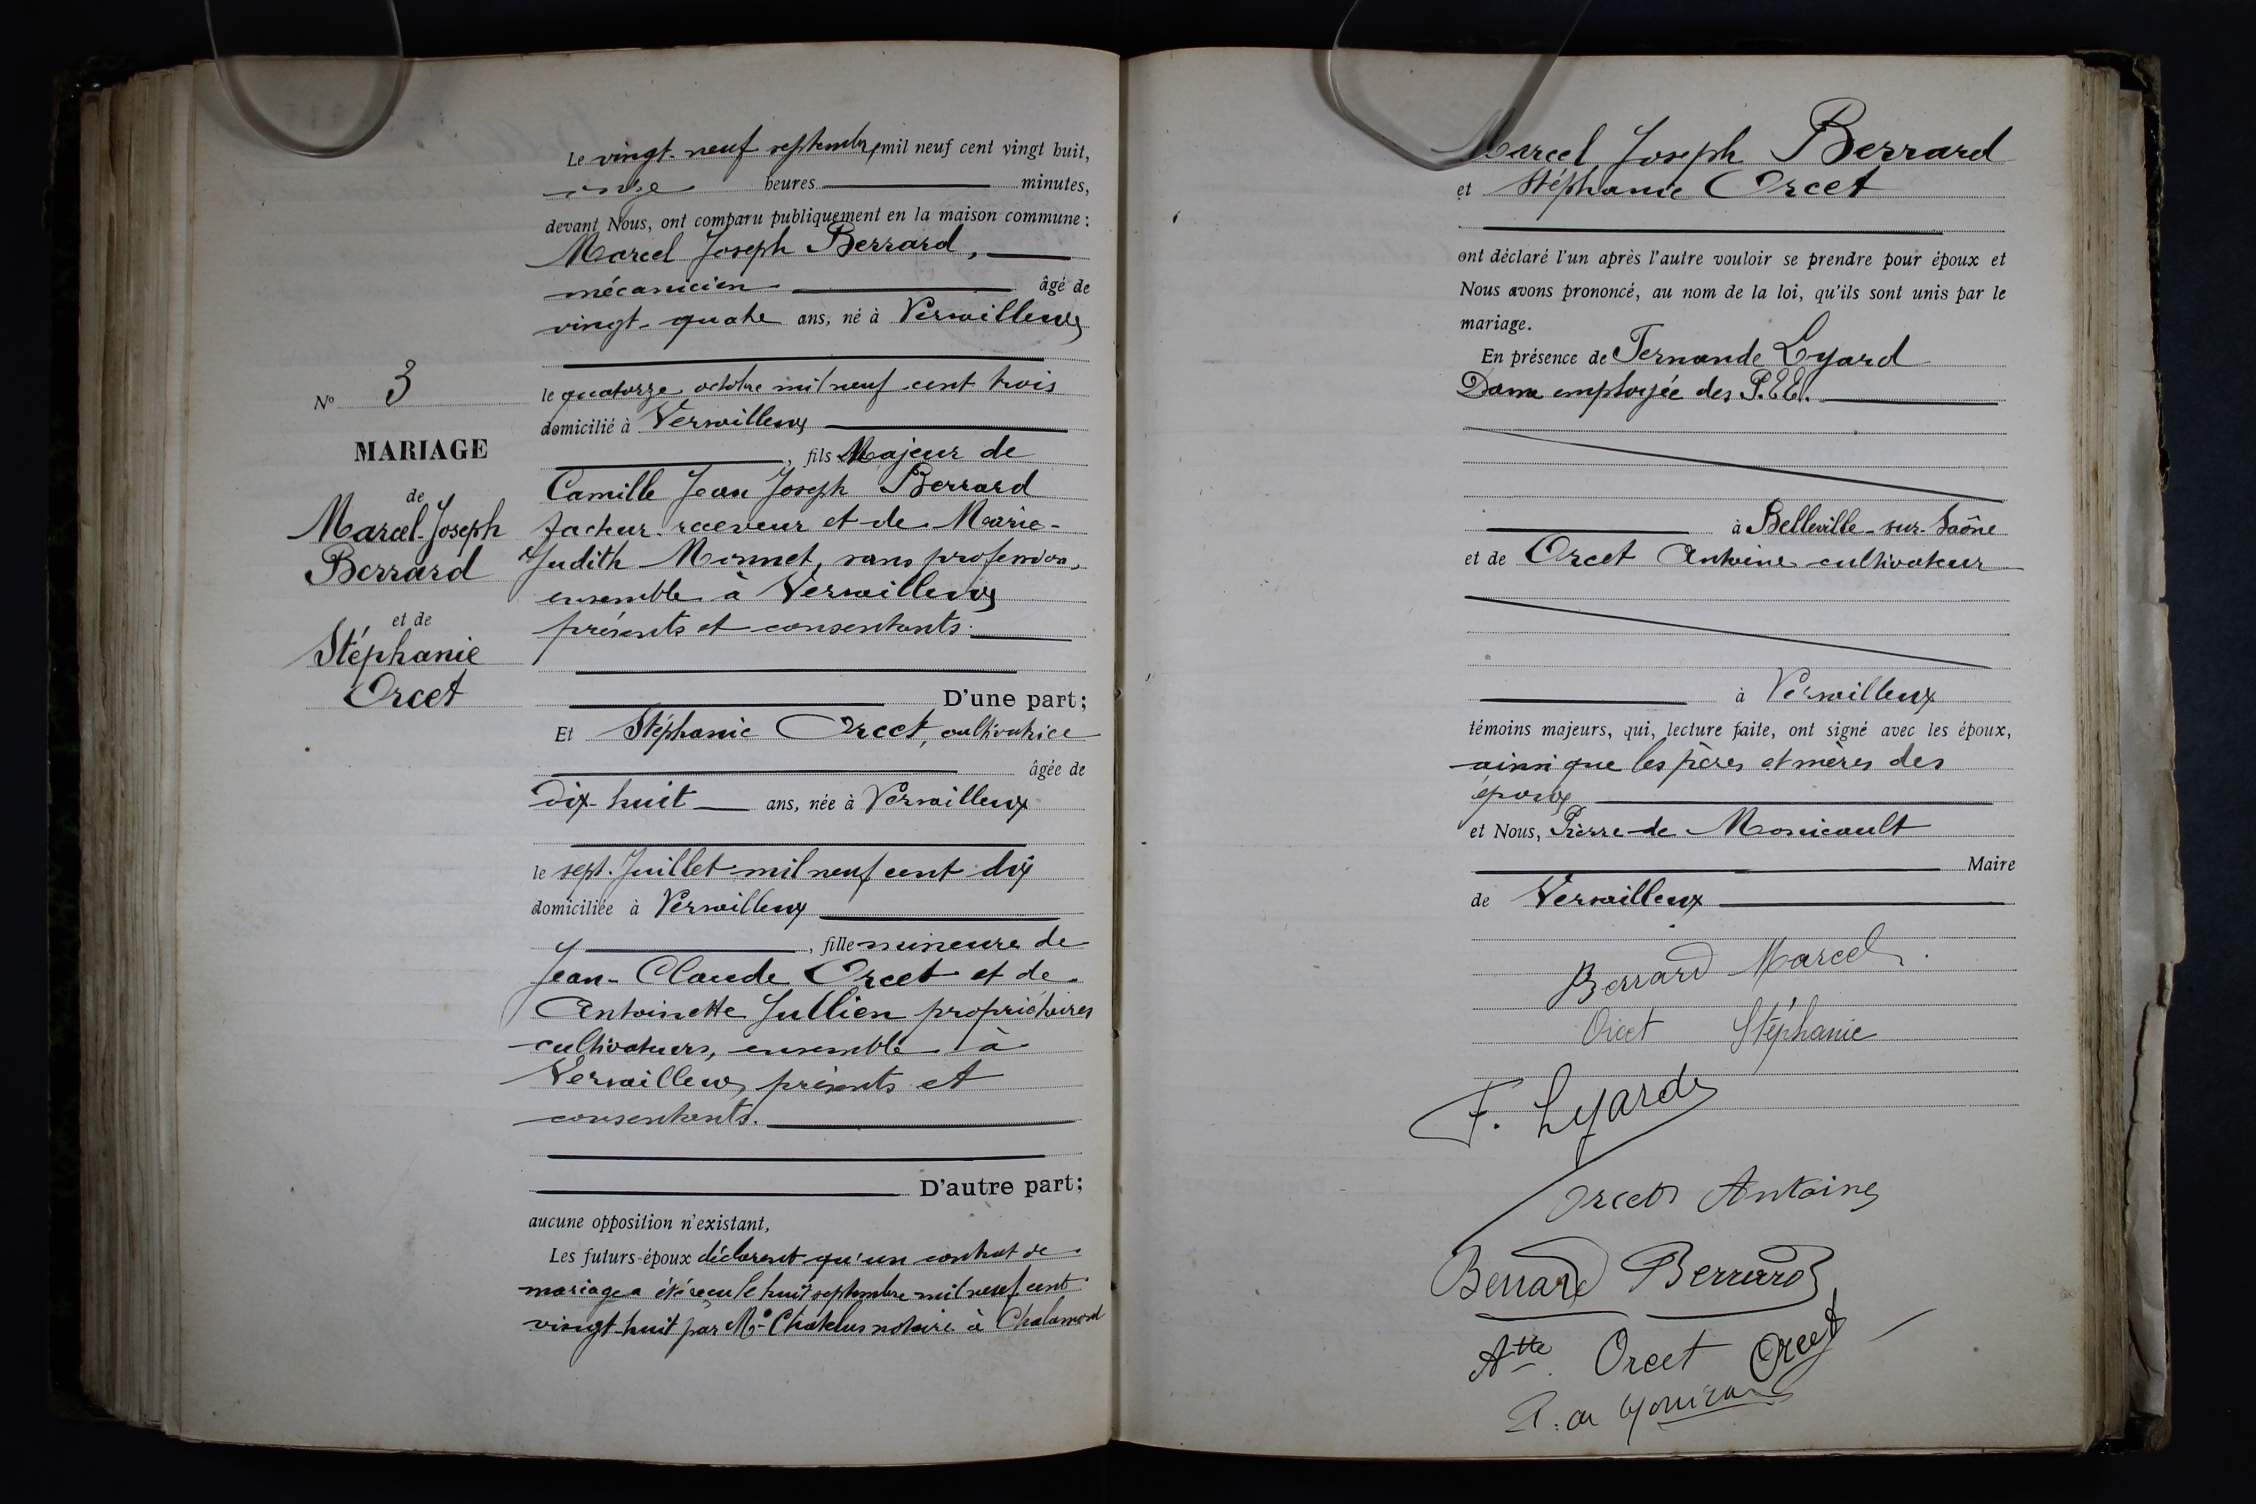 Le vingt-neuf septembre mil neuf cent vingt huit,
onze heures minutes,
devant Nous, ont comparu publiquement en la maison commune :
Marcel Joseph Berrard,
mécanicien âgé de
vingt-quatre ans, né à Versailleux
le quatorze octobre mil neuf cent trois
domicilié à Versailleux
, fils Majeur de
Camille Jean Joseph Berrard
facteur receveur et de Marie-
Judith Monnet, sans profession,
ensemble à Versailleux
présents et consentants.
D'une part;
Et Stéphanie Orcet, cultivatrice
âgée de
Dix-huit ans, née à Versailleux
le sept Juillet mil neuf cent dix
domiciliée à Versailleux
, fille mineure de
Jean-Claude Orcet et de
Antoinette Jullien propriétaires
cultivateurs, ensemble à
Versailleux, présents et
consentants.
D'autre part;
aucune opposition n'existant,
Les futurs-époux déclarent qu'un contrat de
mariage a été reçu le huit septembre mil neuf cent
vingt-huit par Me Chatelus notaire à Chalamont
No 3
MARIAGE
de
Marcel-Joseph
Berrard
et de
Stéphanie
Orcet
Marcel Joseph Berrard
et Stéphanie Orcet
ont déclaré l'un après l'autre vouloir se prendre pour époux et
Nous avons prononcé, au nom de la loi, qu'ils sont unis par le
mariage.
En présence de Fernande Lyard
Dame employée des P.T.T.
à Belleville-sur-Saône
et de Orcet Antoine cultivateur
à Versailleux
témoins majeurs, qui, lecture faite, ont signé avec les époux,
ainsi que les pères et mères des
époux
et Nous, Pierre de Monicault
Maire
de Versailleux
Berrard Marcel.
Orcet Stéphanie
F. Lyard
Orcet Antoine
Berrard Berrard
Atte Orcet Orcet
P. de Monicault